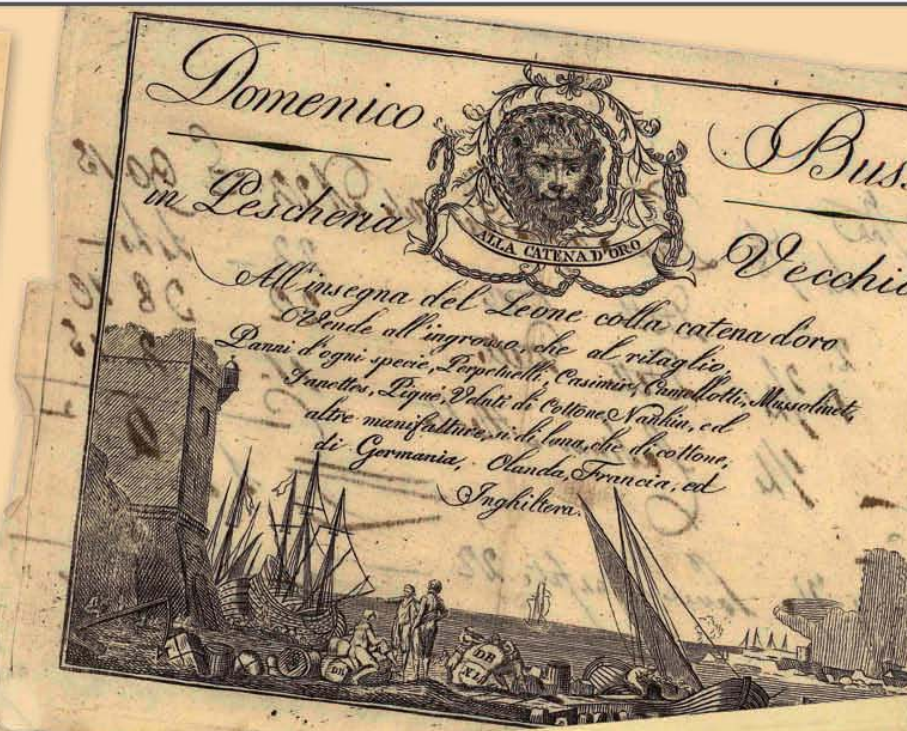 Domenico Buss
ALLA CATENA D'ORO
in Pescheria Vecchia
All'insegna del Leone colla catena d'oro
Vende all'ingrosso, che al ritaglio,
Panni d'ogni specie, Perpetuelli, Casimir, Camellotti, Mussolinet,
Fanettes, Piqué, Veluti di Cottone, Nankin, ed
altre manifatture, si di lana, che di cottone,
di Germania, Olanda, Francia, ed
Inghiltera.
DB
DB
XL